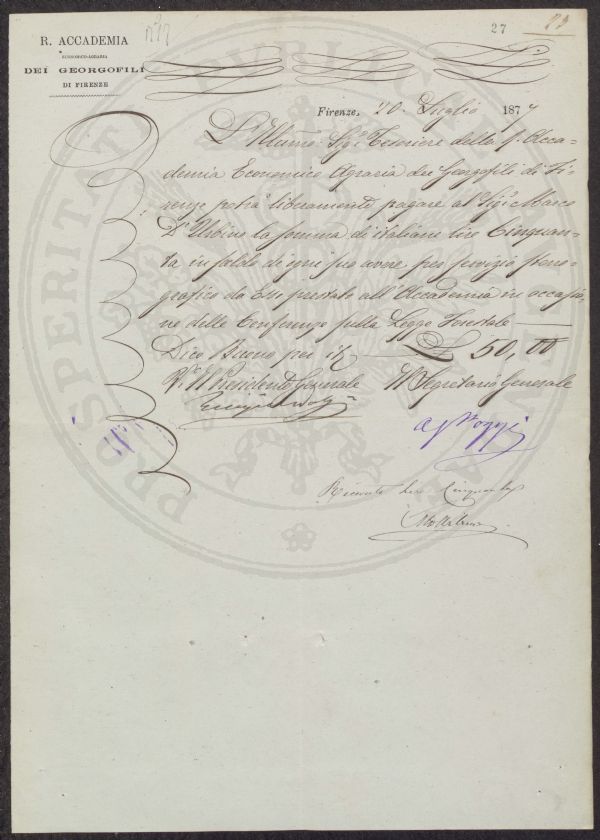 27
R. ACCADEMIA
ECONOMICO-AGRARIA
DEI GEORGOFILI
DI FIRENZE
PROSPERITATI PUBLICAE AUGENDAE
Firenze, 20 Luglio 1877
L'Illmo: Sigr: Tesoriere della R. Acca-
demia Economico Agraria dei Georgofili di Fi-
renze potrà liberamente pagare al Sigr: Marco
D'Urbino la somma di italiane lire Cinquan-
ta in saldo di ogni suo avere per servizio steno-
grafico da Esso prestato all'Accademia in occasio-
ne delle Conferenze sulla Legge Forestale
Dico Buono per it£ £ 50,00
Vº Il Presidente Generale Il Segretario Generale
Ricevute Lire Cinquanta